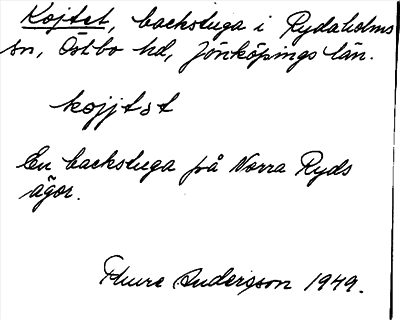 Kojtet, backstuga i Rydaholms
sn, Östbo hd, Jönköpings län.
kojjtst
En backstuga på Norra Ryds
ägor.
Thure Andersson 1949.